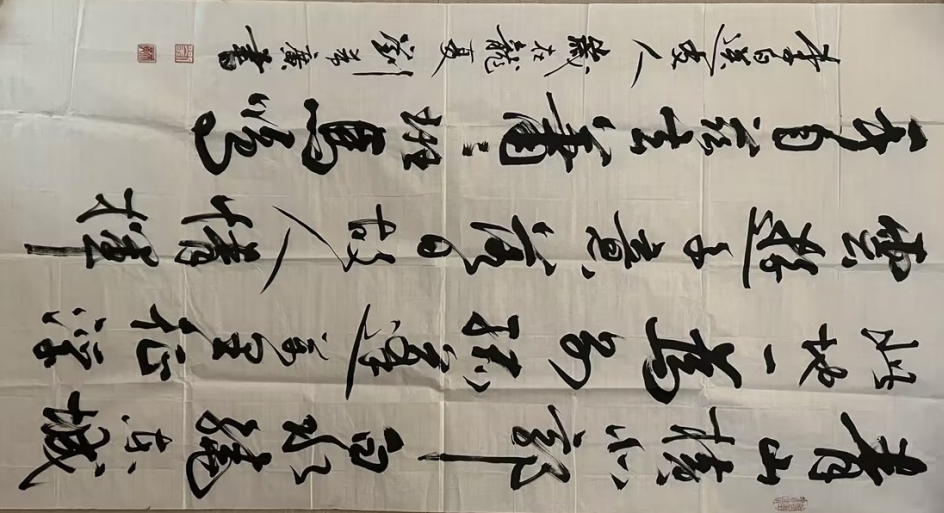 青山橫北郭白水繞東城
此地一為別孤蓬萬里征浮
雲遊子意落日故人情揮
手自茲去蕭蕭班馬鳴
李白送友人 歲在龍夏 劉廣書